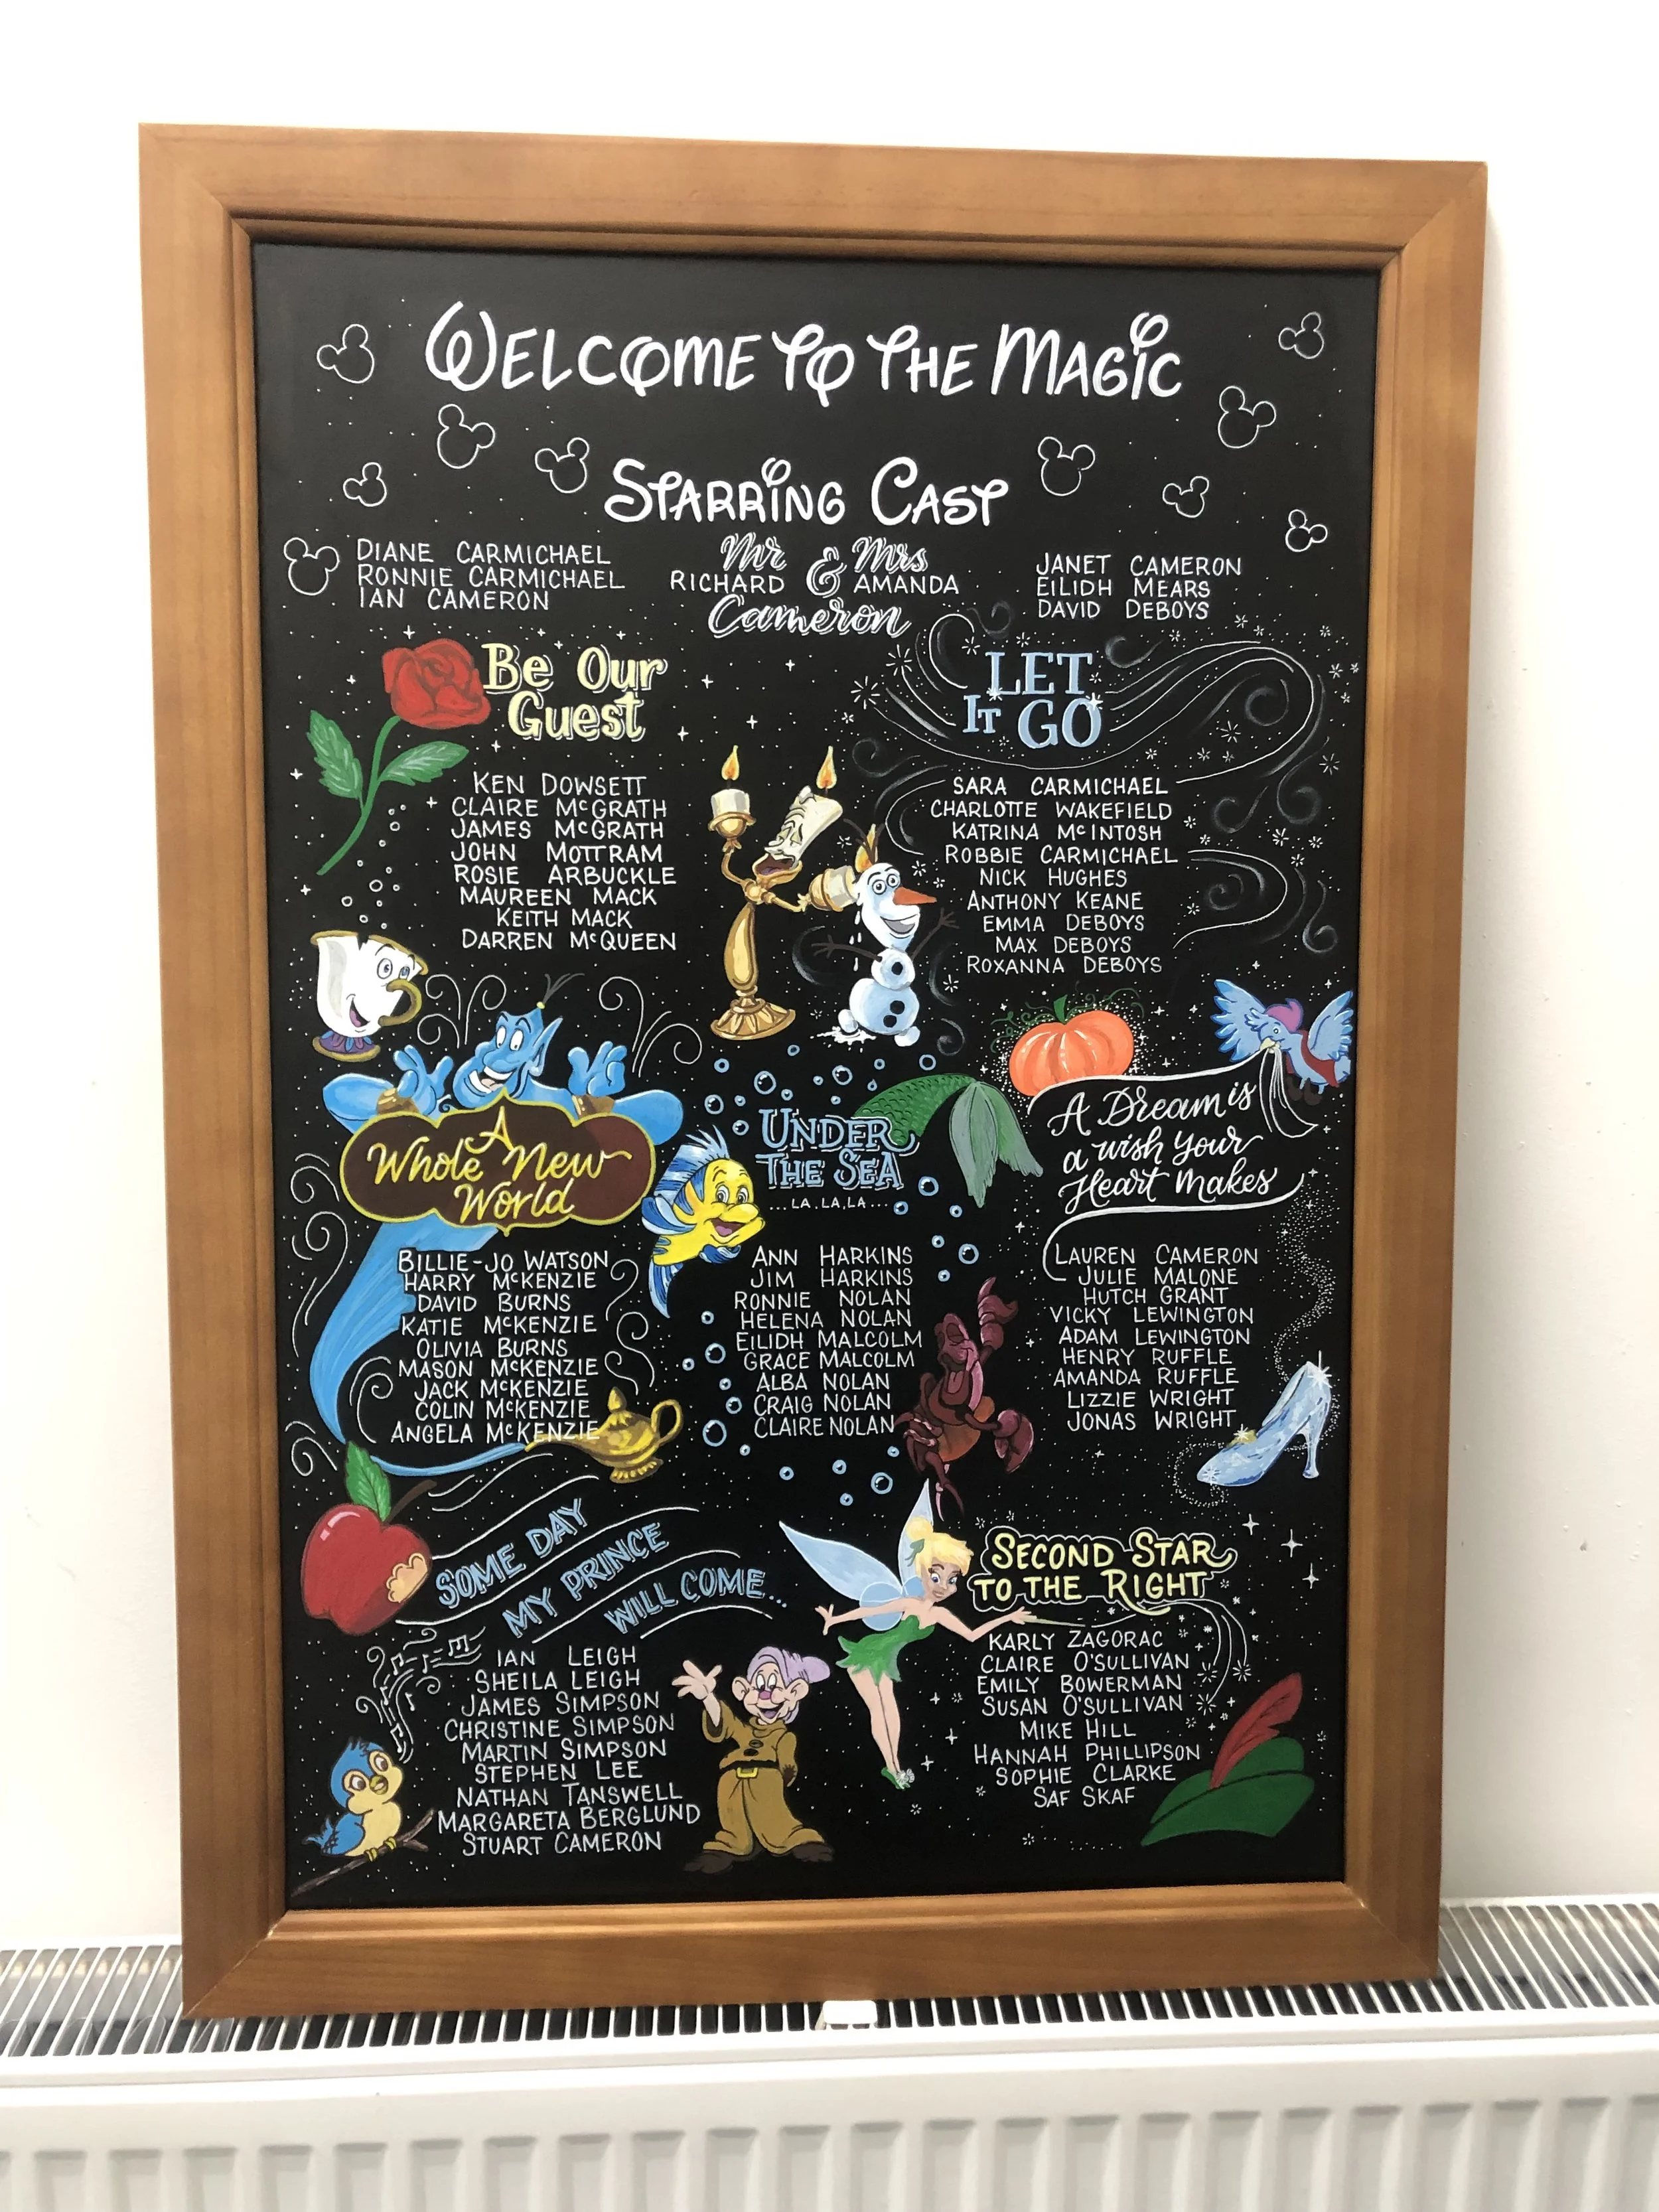 WELCOME TO THE MAGIC
STARRING CAST
DIANE CARMICHAEL
RONNIE CARMICHAEL
IAN CAMERON
Mr & Mrs
RICHARD AMANDA
Cameron
JANET CAMERON
EILIDH MEARS
DAVID DEBOYS
Be Our
Guest
KEN DOWSETT
CLAIRE McGRATH
JAMES McGRATH
JOHN MOTTRAM
ROSIE ARBUCKLE
MAUREEN MACK
KEITH MACK
DARREN McQUEEN
LET
IT GO
SARA CARMICHAEL
CHARLOTTE WAKEFIELD
KATRINA McINTOSH
ROBBIE CARMICHAEL
NICK HUGHES
ANTHONY KEANE
EMMA DEBOYS
MAX DEBOYS
ROXANNA DEBOYS
A
Whole New
World
BILLIE-JO WATSON
HARRY McKENZIE
DAVID BURNS
KATIE McKENZIE
OLIVIA BURNS
MASON McKENZIE
JACK McKENZIE
COLIN McKENZIE
ANGELA McKENZIE
UNDER
THE SEA
...LA.LA.LA...
ANN HARKINS
JIM HARKINS
RONNIE NOLAN
HELENA NOLAN
EILIDH MALCOLM
GRACE MALCOLM
ALBA NOLAN
CRAIG NOLAN
CLAIRE NOLAN
A Dream is
a wish your
Heart Makes
LAUREN CAMERON
JULIE MALONE
HUTCH GRANT
VICKY LEWINGTON
ADAM LEWINGTON
HENRY RUFFLE
AMANDA RUFFLE
LIZZIE WRIGHT
JONAS WRIGHT
SOME DAY
MY PRINCE
WILL COME...
IAN LEIGH
SHEILA LEIGH
JAMES SIMPSON
CHRISTINE SIMPSON
MARTIN SIMPSON
STEPHEN LEE
NATHAN TANSWELL
MARGARETA BERGLUND
STUART CAMERON
SECOND STAR
TO THE RIGHT
KARLY ZAGORAC
CLAIRE O'SULLIVAN
EMILY BOWERMAN
SUSAN O'SULLIVAN
MIKE HILL
HANNAH PHILLIPSON
SOPHIE CLARKE
SAF SKAF